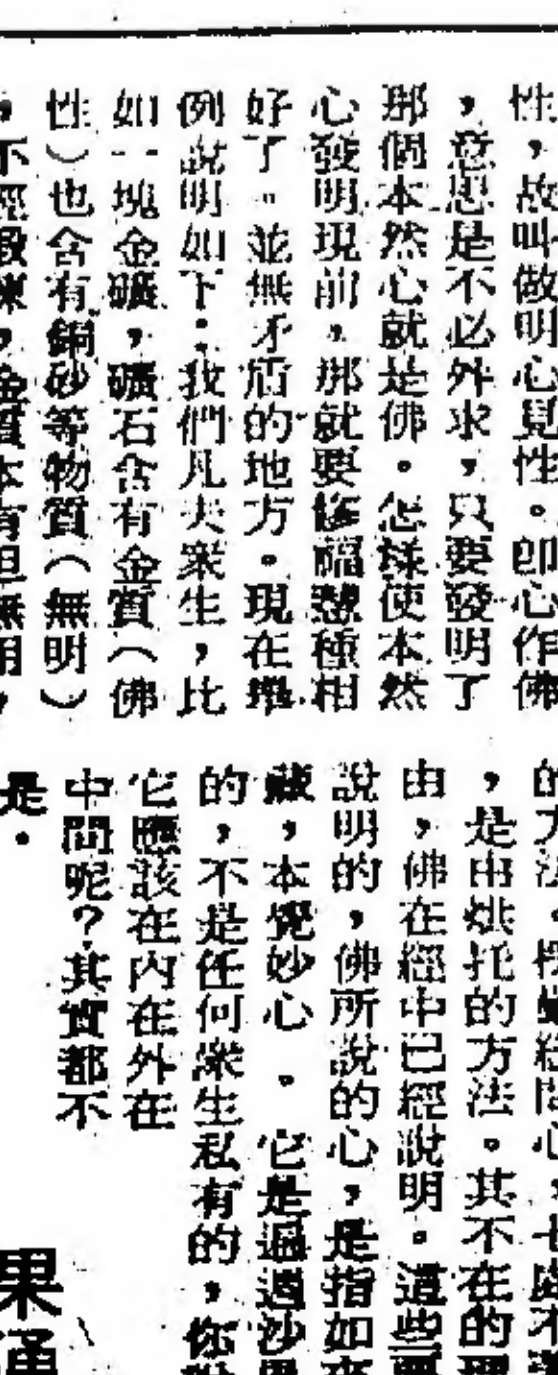 性，故叫做明心見性。卽心作佛
，意思是不必外求，只要發明了
那個本然心就是佛。怎樣使本然
心發明現前，那就要修福慧種相
好了。並無矛盾的地方。現在舉
例說明如下：我們凡夫衆生，比
如一塊金礦，礦石含有金質（佛
性）也含有銅砂等物質（無明）
，不經鍛煉，金質本有但無用，
的方法。楞嚴經問心，七處不
，是由烘托的方法。其不在的理
由，佛在經中已經說明。這些要
說明的，佛所說的心，是指如來
藏，本覺妙心。它是遍週沙界
的，不是任何衆生私有的，你說
它應該在內在外在
中間呢？其實都不
是。
果